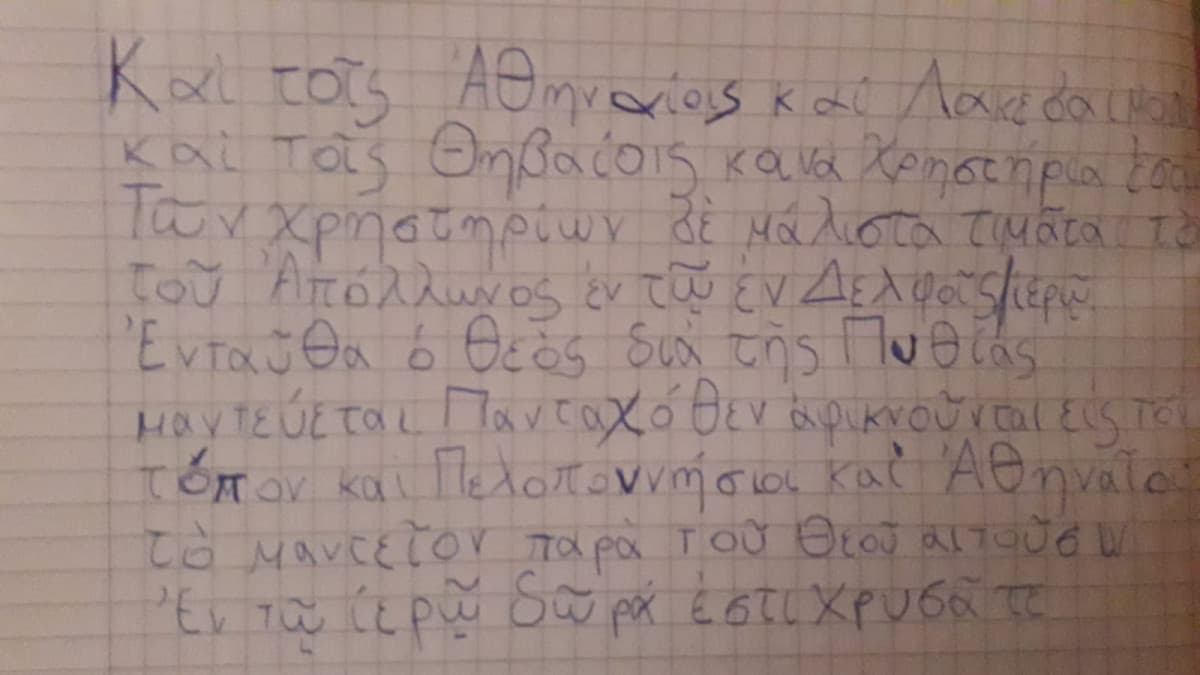 Καί τοῖς Ἀθηναίοις καί
καί τοῖς Θηβαίοις κανα χρηστήρια
Τῶν χρηστηρίων δέ μάλιστα τιμᾶται τό
τοῦ Ἀπόλλωνος ἐν τῷ ἐν Δελφοῖς/ἱερῷ.
Ἐνταῦθα ὁ θεός διά τῆς Πυθίας
μαντεύεται Πανταχόθεν ἀφικνοῦνται εἰς τόν
τόπον καί Πελοποννήσιοι καί Ἀθηναῖοι
τό μαντεῖον παρά τοῦ θεοῦ
Ἐν τῷ ἱερῷ δῶρά ἐστι χρυσᾶ τε